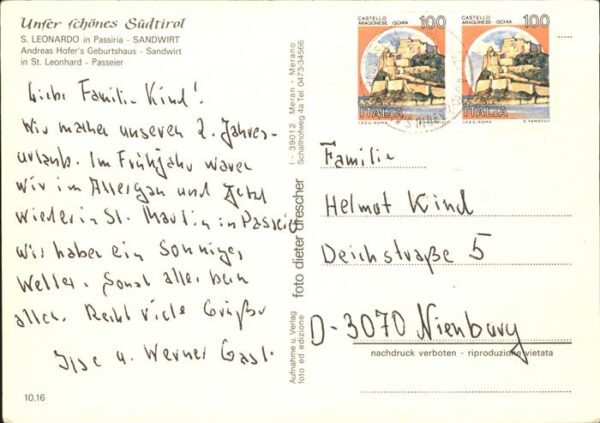 Unser schönes Südtirol
S. LEONARDO in Passiria - SANDWIRT
Andreas Hofer's Geburtshaus - Sandwirt
in St. Leonhard - Passeier
Liebe Familie Kind!
Wir machen unseren 2. Jahres-
urlaub. Im Frühjahr waren
wir im Allergau und jetzt
wieder in St. Martin in Passeier
wir haben ein Sonniges
Wetter. Sonst alles beim
alten. Recht viele Grüße
Ilse u. Werner Gast.
10.16
I - 39012 Meran - Merano
Schallhofweg 4a Tel. 0473-34566
foto dieter drescher
Aufnahme u. Verlag
foto ed edizione
CASTELLO
ARAGONESE ISCHIA
100
ITALIA
I.P.Z.S.-ROMA
CASTELLO
ARAGONESE ISCHIA
100
ITALIA
I.P.Z.S.-ROMA
Familie
Helmut Kind
Deichstraße 5
D-3070 Nienburg
nachdruck verboten - riproduzione vietata